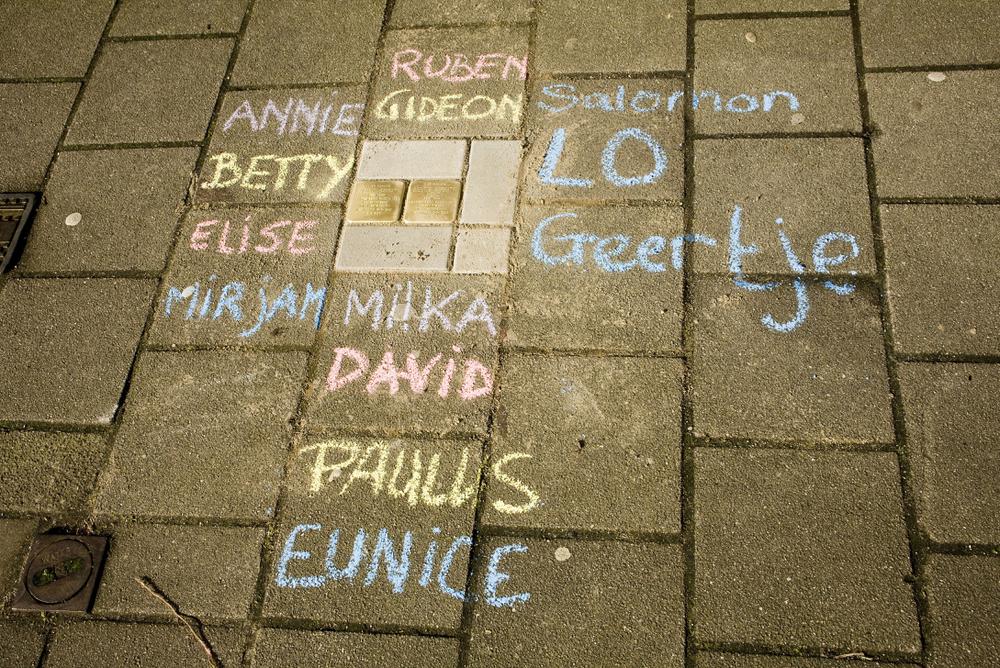 RUBEN
GIDEON
ANNIE
BETTY
ELiSE
MiRjAM
Salomon
LO
Geertje
MiLKA
DAViD
PAULUS
EUNiCE